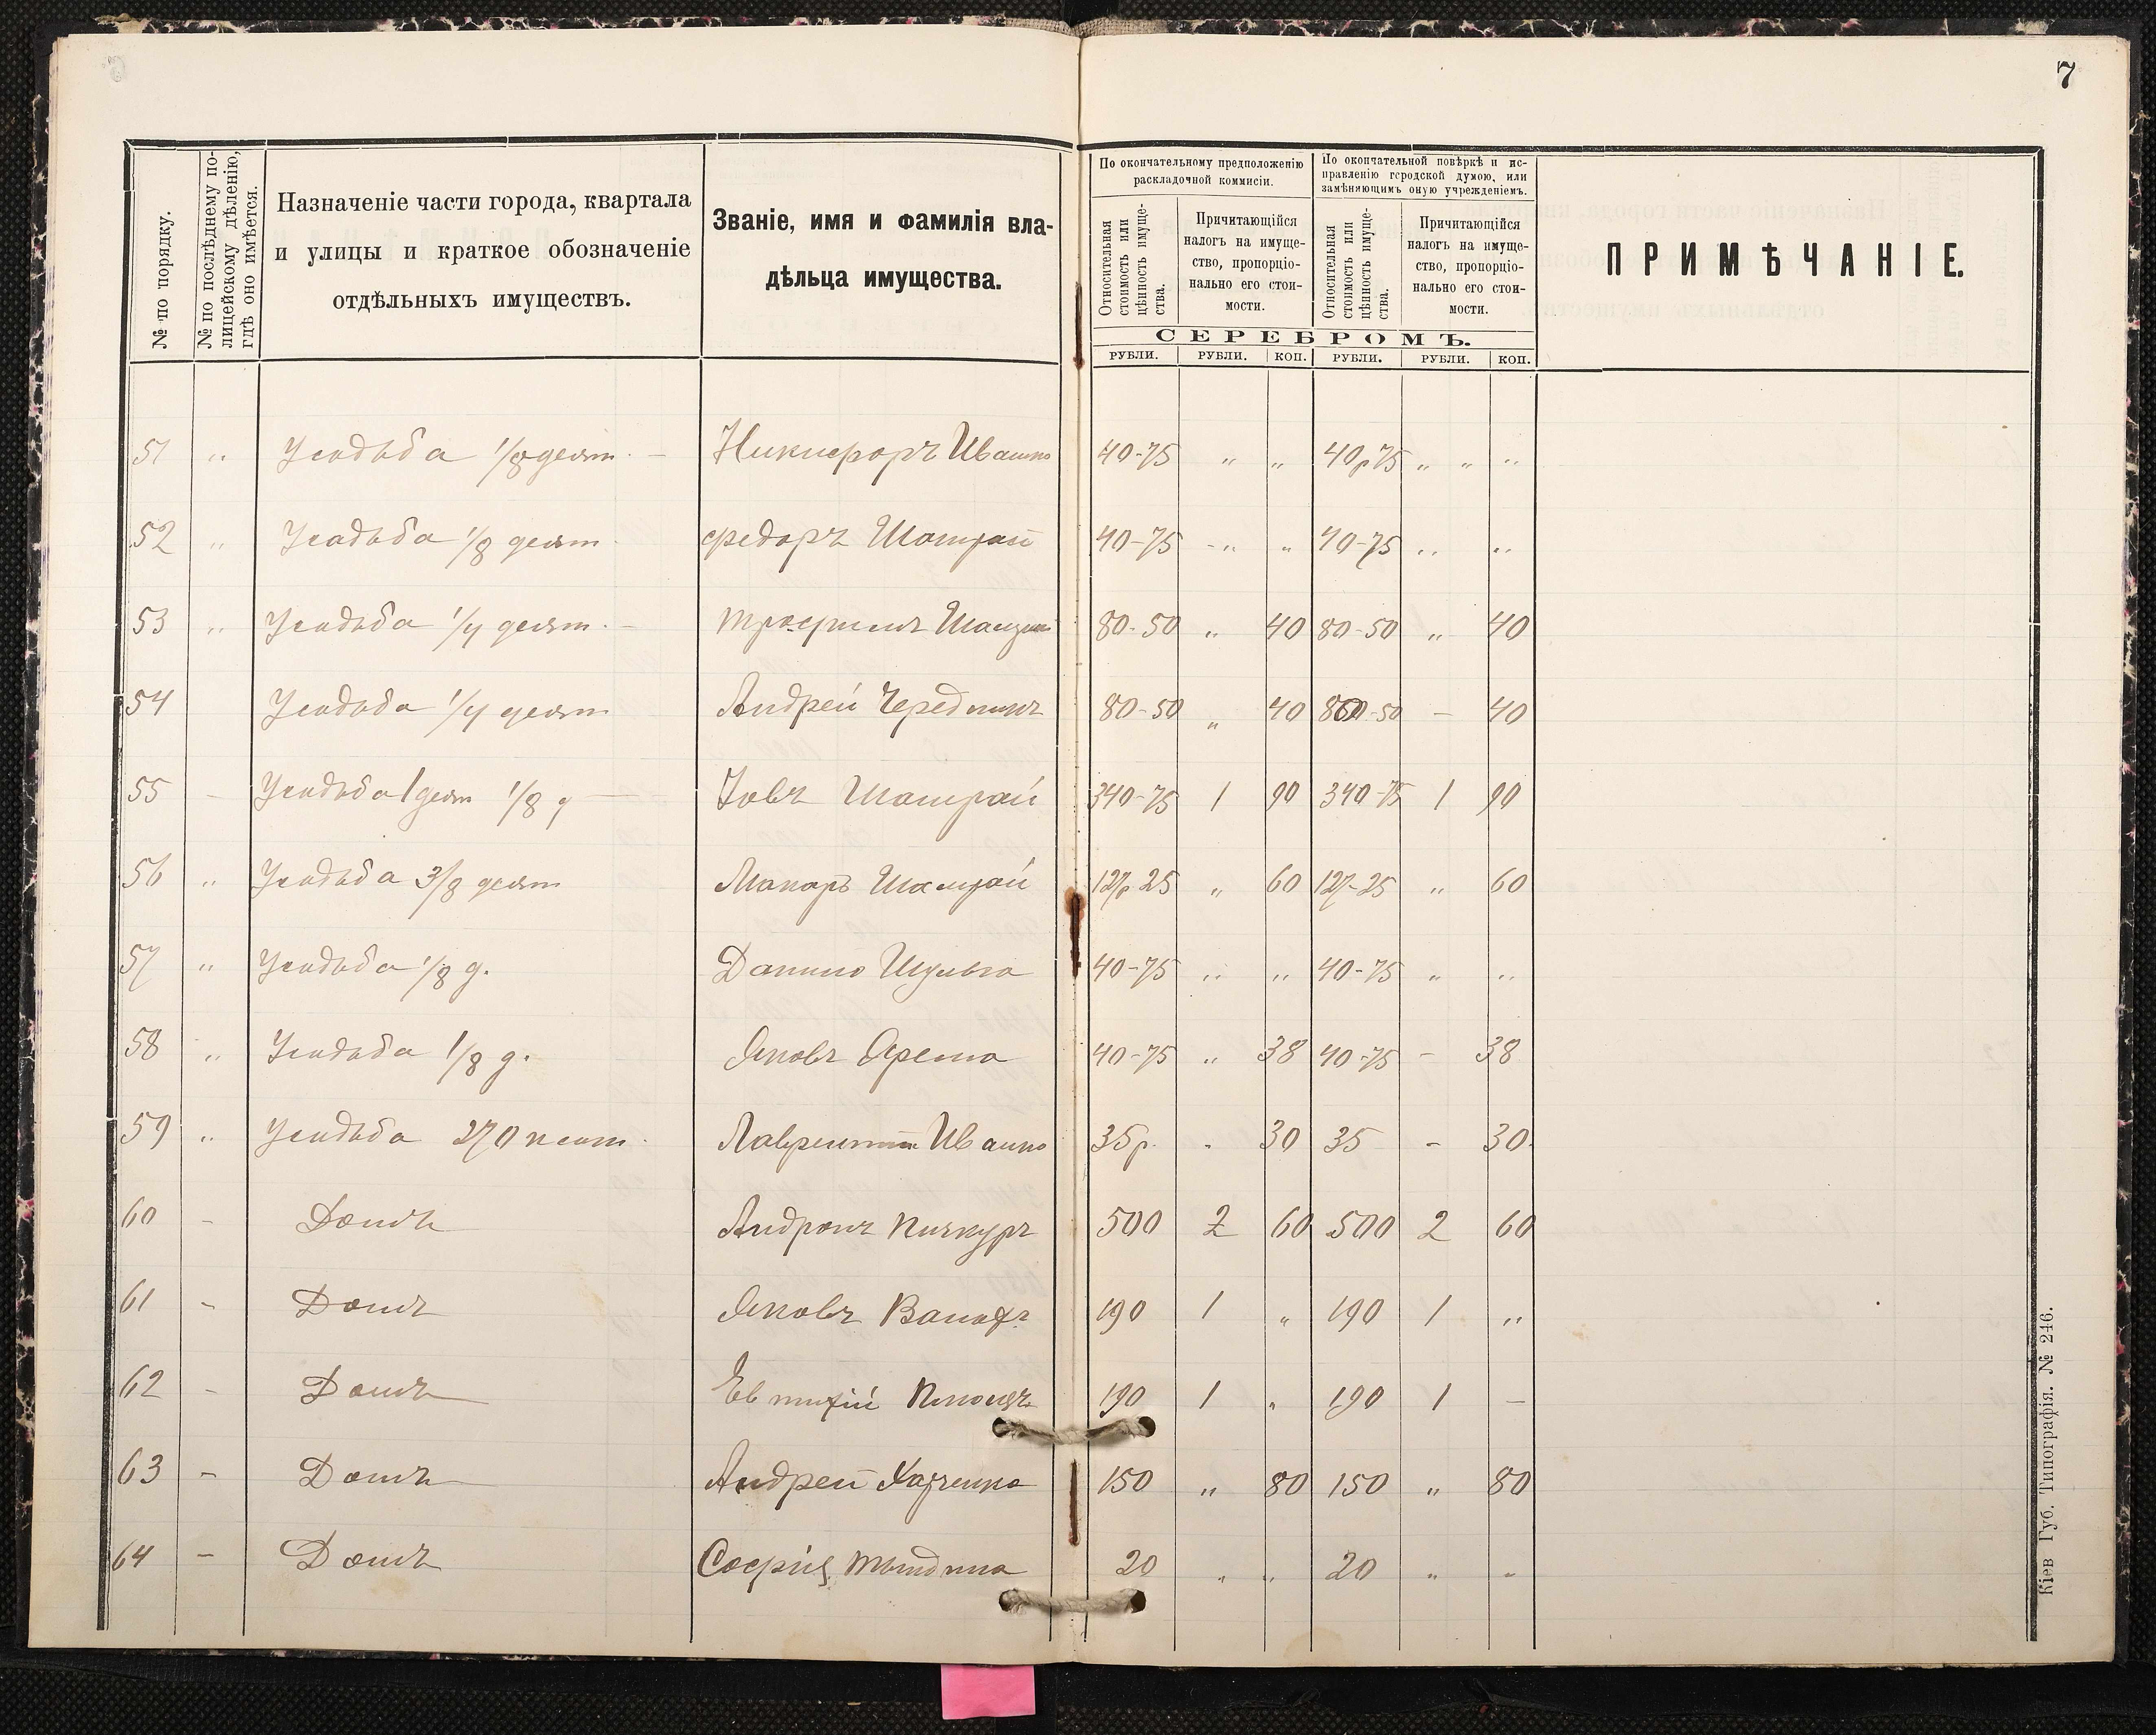 7
№ по порядку.
№ по послѣднему по-
лицейскому дѣленію,
гдѣ оно имѣется.
Назначеніе части города, квартала
и улицы и краткое обозначеніе
отдѣльныхъ имуществъ.
Званіе, имя и фамилія вла-
дѣльца имущества.
По окончательному предположенію
раскладочной коммисіи.
Относительная
стоимость или
цѣнность имуще-
ства.
Причитающійся
налогъ на имуще-
ство, пропорціо-
нально его стои-
мости.
По окончательной повѣркѣ и ис-
правленію городской думою, или
замѣняющимъ оную учрежденіемъ.
Относительная
стоимость или
цѣнность имуще-
ства.
Причитающійся
налогъ на имуще-
ство, пропорціо-
нально его стои-
мости.
СЕРЕБРОМЪ.
РУБЛИ. РУБЛИ. КОП. РУБЛИ. РУБЛИ. КОП.
ПРИМѢЧАНІЕ.
51 " Усадьба 1/8 десят. - Никифоръ Ивашко 40-75 " " 40р75 " " "
52 " Усадьба 1/8 десят. Федоръ Шатрай 40-75 -" " 40-75 " "
53 " Усадьба 1/4 десят. - 80-50 " 40 80-50 " 40
54 Усадьба 1/4 десят Андрей Чередникъ 80-50 " 40 80-50 - 40
55 - Усадьба 1 десят 1/8 д - Іовъ Шатрай 340-75 1 90 340-75 1 90
56 " Усадьба 3/8 десят Макаръ Шатрай 127р25 " 60 127-25 " 60
57 " Усадьба 1/8 д. Данило Шульга 40-75 " " 40-75 " "
58 " Усадьба 1/8 д. Яковъ Ярема 40-75 " 38 40-75 - 38
59 " Усадьба 270 Лаврентій Ивашко 35р. - 30 35 - 30.
60 - Домъ Андронъ 500 2 60 500 2 60
61 - Домъ Яковъ 190 1 " 190 1 "
62 - Домъ Евтихій 190 1 " 190 1 -
63 - Домъ Андрей Харченко 150 " 80 150 " 80
64 - Домъ Софія 20 " " 20 " "
Кіев Губ. Типографія. № 246.